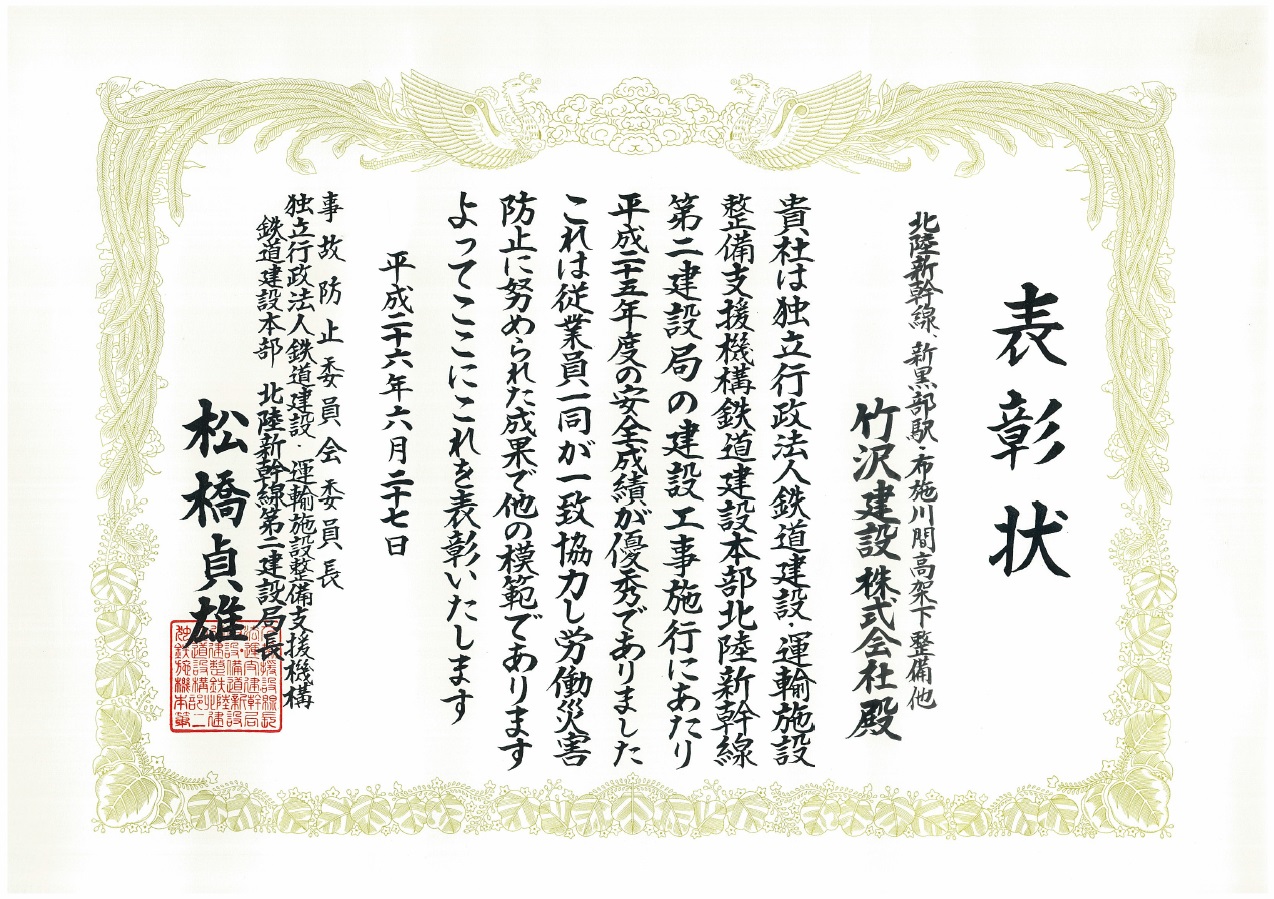 表彰状
北陸新幹線、新黒部駅・布施川間高架下整備他
竹沢建設株式会社殿
貴社は独立行政法人鉄道建設・運輸施設
整備支援機構鉄道建設本部北陸新幹線
第二建設局の建設工事施行にあたり
平成二十五年度の安全成績が優秀でありました
これは従業員一同が一致協力し労働災害
防止に努められた成果で他の模範であります
よってここにこれを表彰いたします
平成二十六年六月二十七日
事故防止委員会委員長
独立行政法人鉄道建設・運輸施設整備支援機構
鉄道建設本部 北陸新幹線第二建設局長
松橋貞雄